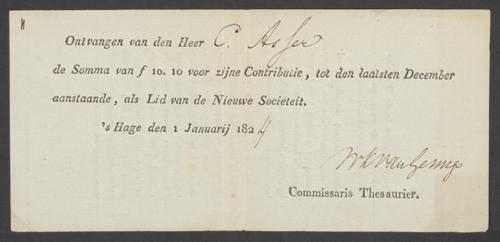 Ontvangen van den Heer C. Asser
de Somma van f 10. 10 voor zijne Contributie, tot den laatsten December
aanstaande, als Lid van de Nieuwe Societeit.
's Hage den 1 Januarij 1824
Commissaris Thesaurier.